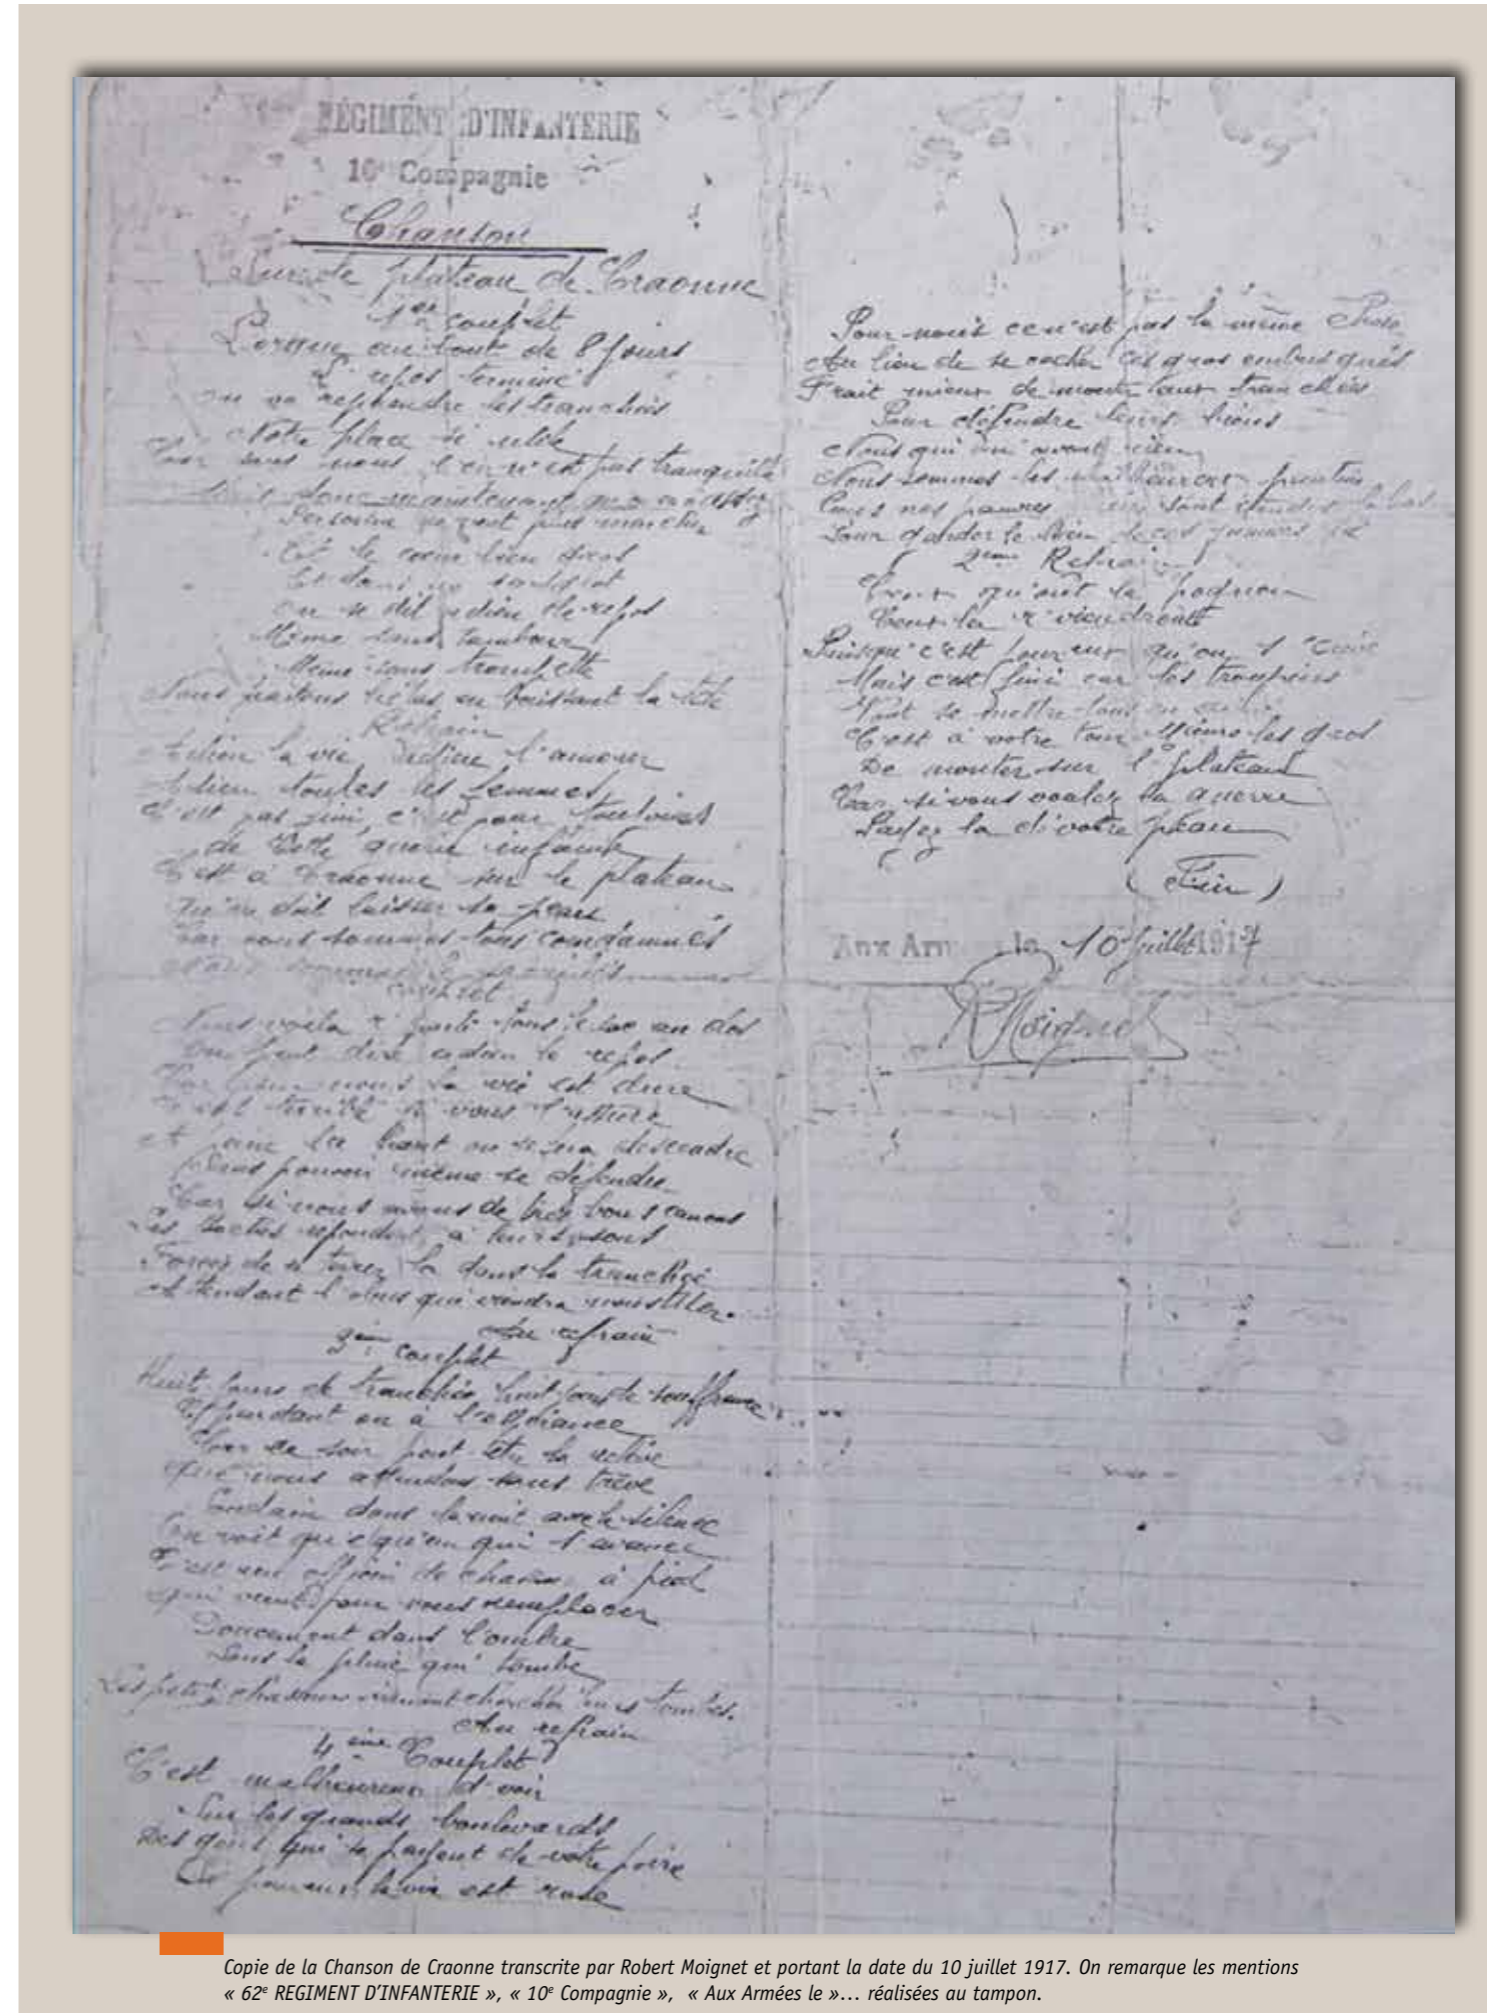 RÉGIMENT D'INFANTERIE
10e Compagnie
Chanson
Sur le plateau de Craonne
1er couplet
Lorsque au bout de 8 jours
L' repos terminé
On va reprendre les tranchées
Notre place si utile
Car sans nous l'on n'est pas tranquille
donc maintenant on en a assez
Personne ne veut plus marcher
Et le cœur bien gros
Et dans un sanglot
On se dit adieu de repos
Même sans tambour
Meme sans trompette
Nous partons hélas en baissant la tête
Refrain
Adieu la vie Adieu l'amour
Adieu toutes les femmes
C'est pas fini, c'est pour toutoirs
de cette guerre infâme
C'est à Craonne sur le plateau
qu'on doit laisser sa peau
Car nous sommes tous condamnés
Nous sommes les
couplet
Nous voila parti tous le sac au dos
On peut dire adieu le repos
Car pour nous la vie est dure
C'est terrible je vous l'assure
A peine la haut on sera descendre
Sans pouvoir même se défendre
Car si nous avons de très bons canons
Les boches repondent à leurs sons
Forcés de s' terrer la dans la tranchée
Attendant l'obus qui viendra nous tuer.
Au refrain
3ème couplet
Huit jours de tranchée huit jours de souffrance
Cependant on à l'espérance
Car ce soir peut etre la relève
Que nous attendons sans trève
Soudain dans la nuit avec le silence
On voit quelqu'un qui s'avance
C'est un officier de chasseur à pied
qui vient pour nous remplacer
Doucement dans l'ombre
Sous la pluie qui tombe
Les petits chasseurs viennent chercher leurs tombes.
Au refrain
4ème Couplet
C'est malheureux d'voir
Sur les grands boulevards
Des gens qui se payent de votre foire
Si pour eux la vie est rose
Pour nous ce n'est pas la même chose
Au lieu de se cacher ces gros embusqués
F'rait mieux de monter aux tranchées
Pour défendre leurs biens
Nous qui n'avons rien
Nous sommes les malheureux
Tous nos pauvres sont étendus la bas
Pour garder le bien de ces
2ème Refrain
Ceux qu'ont le pognon
Ceux la r'viendront
Puisque c'est pour eux qu'on s' crève
Mais c'est fini car les troupiers
Vont se mettre tous en grève
C'est à votre tour Messieurs les gros
De monter sur l' plateau
Car si vous voulez la guerre
Payez la d'votre peau
(Fin)
Aux Armées le 10 Juillet 1917
R Moignet
Copie de la Chanson de Craonne transcrite par Robert Moignet et portant la date du 10 juillet 1917. On remarque les mentions
« 62e REGIMENT D'INFANTERIE », « 10e Compagnie », « Aux Armées le »... réalisées au tampon.